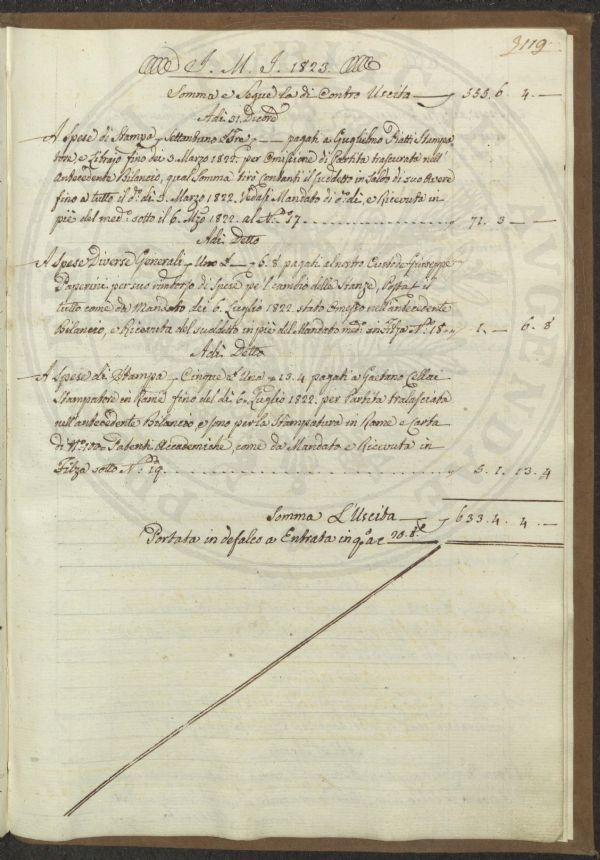 9119
J. M. J. 1823.
Somma e Segue la di Contro Uscita 555. 6. 4. —
Adi 31. Dicere
A Spese di Stampa Settantuno Lire — — pagati a Guglielmo Piatti Stampa
tore, e Librajo fino dei 3. Marzo 1822. per Omissione di Partita trascurata nell'
Antecedente Bilancio, qual Somma tirò Contanti il suddetto in Saldo di suo Avere
fino a tutto il dì 3. Marzo 1822. Vedasi Mandato di dì, e Ricevuta in
piè del med.º sotto il 6. Mzo 1822. al N.º 17. 71. 3. —
Adi Detto
A Spese Diverse Generali Uno — 6. 8. pagati al nostro Custode Giuseppe
Paperini per suo rimborso di Spese pe l'cambio della Stanze, il
tutto come da Mandato dei 6. Luglio 1822. stato Omesso nell'antecedente
Bilancio, e Ricevuta del suddetto in piè del Mandato med. in Filza N.º 18. 1. — 6. 8
Adi Detto
A Spese di Stampa Cinque Uno 13. 4 pagati a Gaetano Cellai
Stampatore en Rame fino del di 6. Luglio 1822. per Partita tralasciata
nell'antecedente Bilancio, e sono per la Stampatura in Rame e Carta
di N.º 100 Patenti Accademiche, come da Mandato e Ricevuta in
Filza sotto N.º 19. 5. 1. 13. 4
Somma L'Uscita 633. 4. 4. —
Portata in defalco a Entrata in q.o a c 20. 8.e